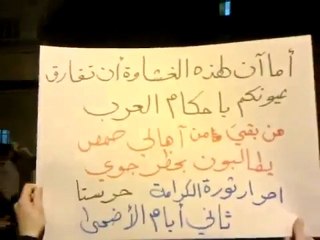 أما آن لهذه الغشاوة أن تفارق
عيونكم يا حكام العرب
من بقي من أهالي حمص
يطالبون بحظر جوي
احرار ثورة الكرامة حرستا
ثاني أيام الأضحى